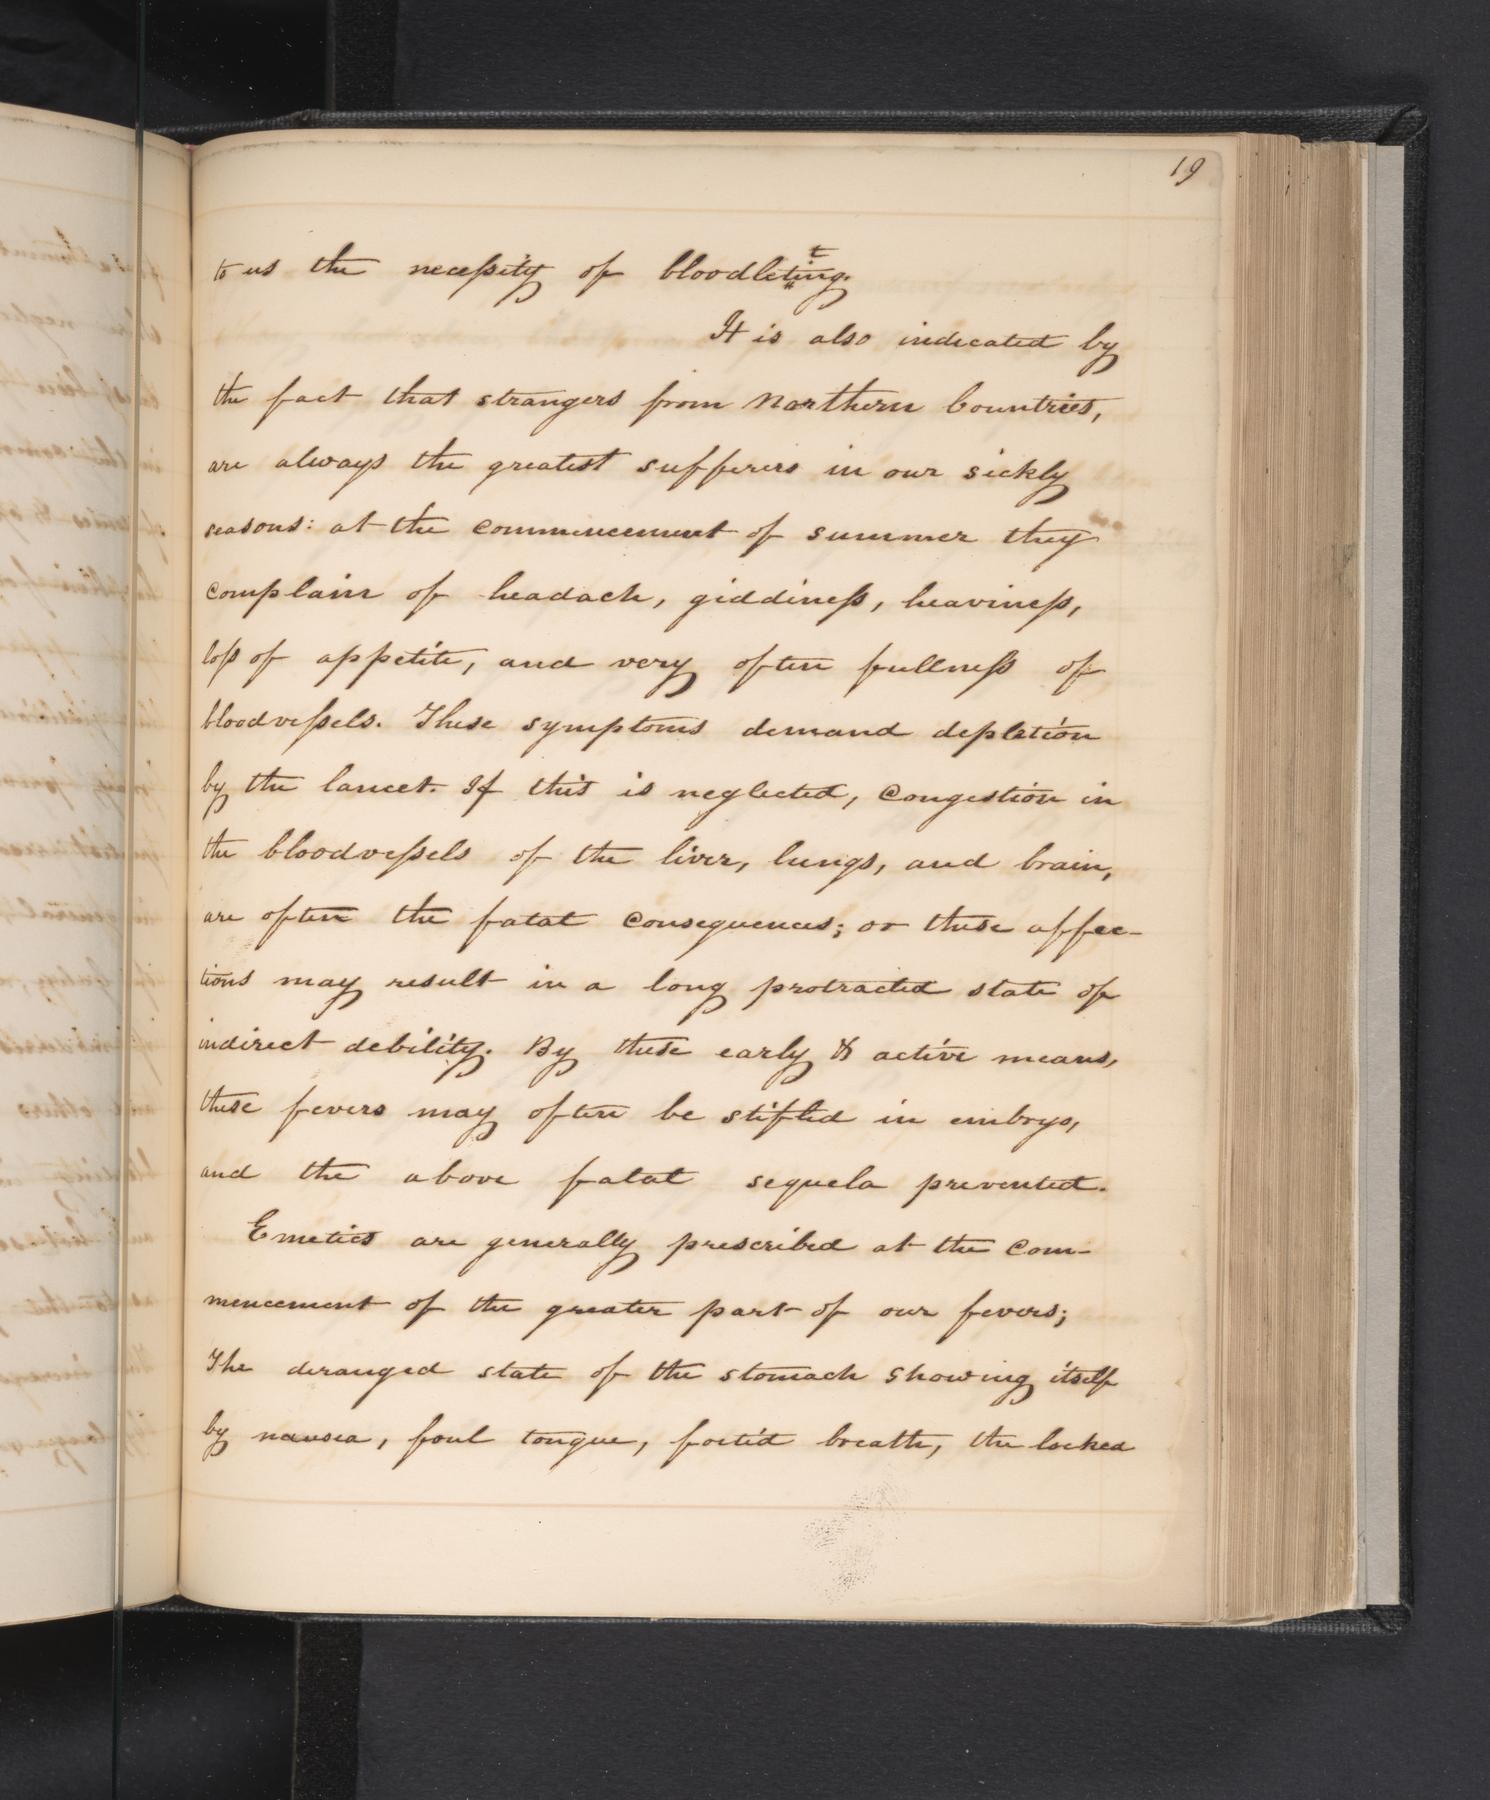 19
to us the necessity of bloodletting.
It is also indicated by
the fact that strangers from Northern Countries,
are always the greatest sufferers in our sickly
seasons: at the commencement of summer they
complain of headach, giddiness, heaviness,
loss of appetite, and very often fullness of
bloodvessels. These symptoms demand depletion
by the lancet. If this is neglected, Congestion in
the bloodvessels of the liver, lungs, and brain,
are often the fatal consequences; or these affec-
tions may result in a long protracted state of
indirect debility. By these early & active means,
these fevers may often be stifled in embryo,
and the above fatal sequela prevented.
Emetics are generally prescribed at the com-
mencement of the greater part of our fevers;
The deranged state of the stomach showing itself
by nausea, foul tongue, foetid breath, the locked